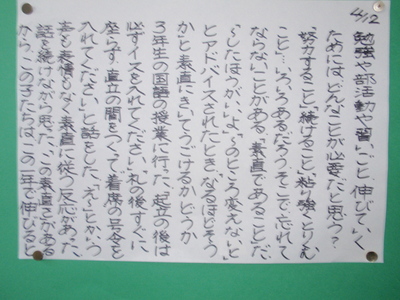 4/12
勉強や部活動や習いごと…伸びていく
ためには、どんなことが必要だと思う？
「努力すること」「続けること」「粘り強くとりくむ
こと」…いろいろあるだろう。そこで、忘れて
ならないことがある。「素直であること」だ。
「～したほうがいいよ。～のところ変えな」い」と
とアドバイスされたとき、「なるほど、そう
か」と素直にきいてうごけるかどうか。
3年生の国語の授業に行った。「起立の後は
必ずイスを入れてください。礼の後すぐに
座らず、直立の間をつくって、着席の号令を
入れてください。」と話をした。「えー」とかいう
声も表情もなく、素直に従う反応があった。
話を続けながら思った。この素直さがある
から、この子たちはこの一年で伸びると